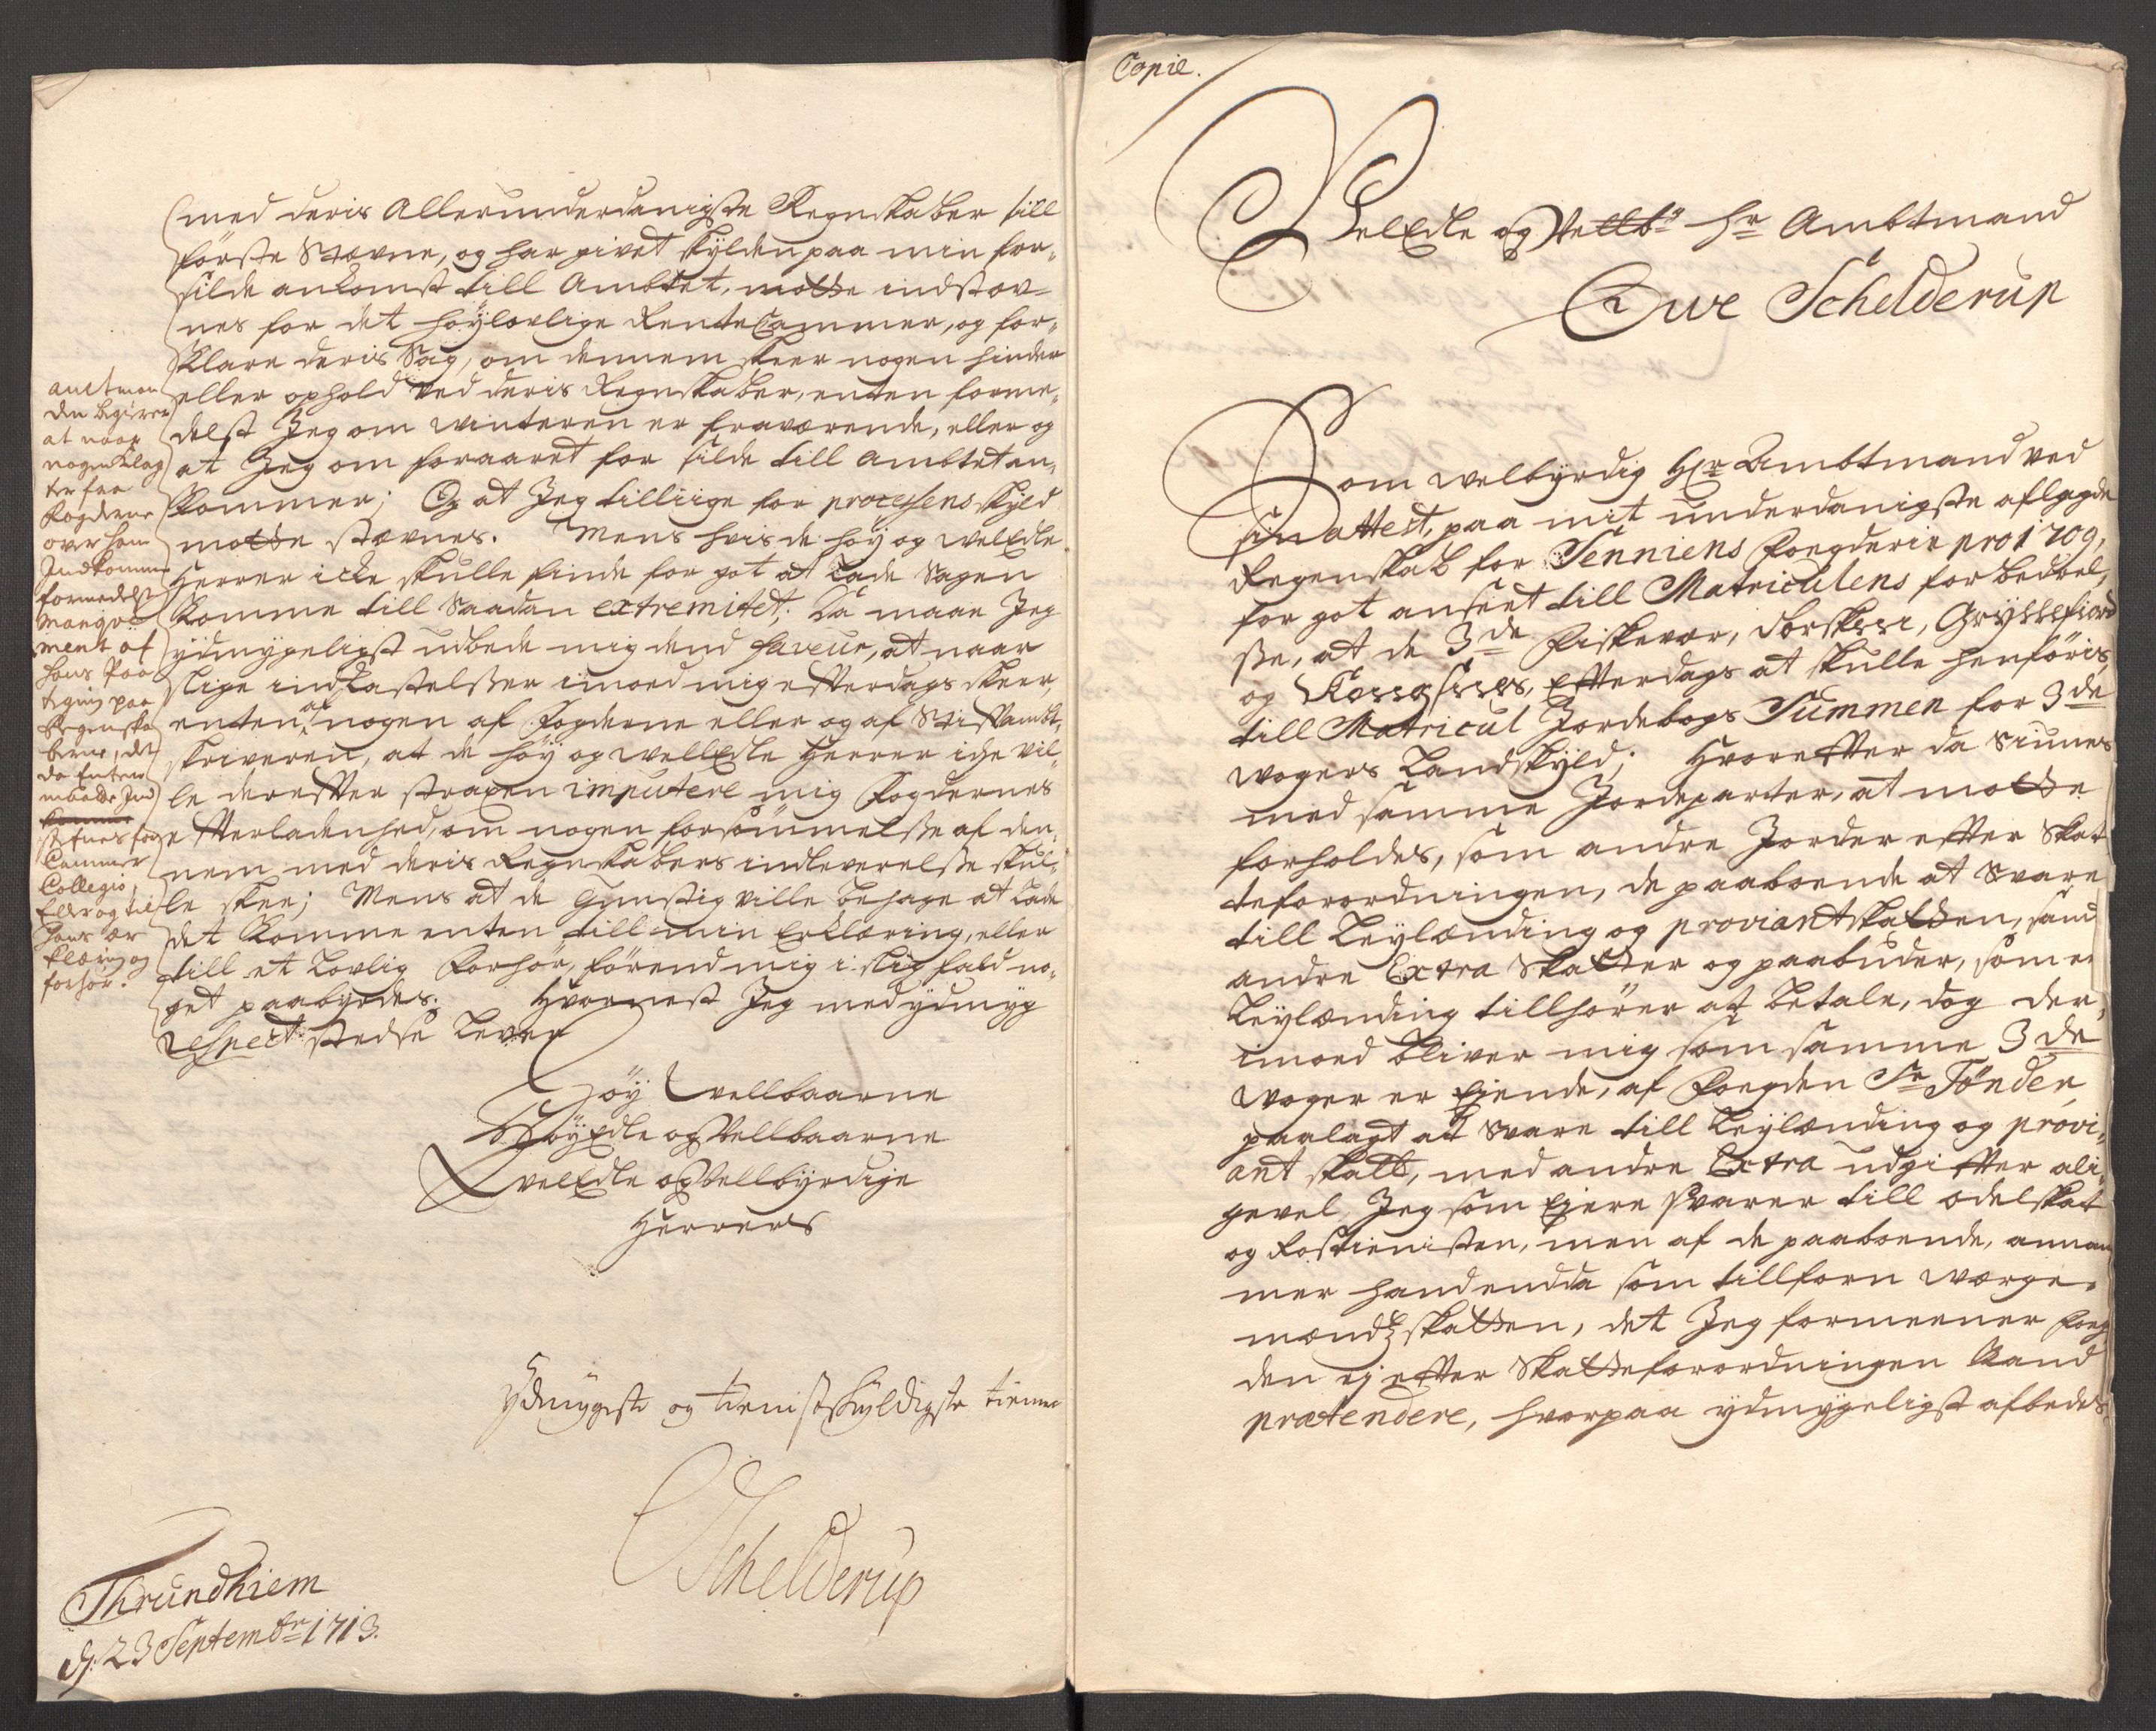 med deris Allerunderdanigste Regnskaber till
förste Stævne, og har givet skylden paa min for„
silde ankomst till Ambtet, motte indstæv„
nes for det höylovlige RenteCammer, og for„
Klare deris Sag, om dennem skeer nogen hinder
eller ophold ved deris Regnskaber, enten forme„
delst Jeg om winteren er fraværende, eller og
at Jeg om foraaret for silde till ambtet an„
kommer; Og at Jeg tilliige for processens skyld
motte stævnes. Mens hvis de höy og welEdle
Herrer icke skulle finde for got at lade Sagen
Komme till Saadan extremitet; Da maae Jeg
ydmygeligst udbede mig dend faveur, at naar
slige indkastelsser imoed mig efterdags skeer,
enten af nogen af Fogderne eller og af Stiftambt„
skriveren, at de höy og wellEdle Herrer iche vil„
le derefter straxen imputere mig Fogdernes
efterladenhed, om nogen forsömmelsse af den„
nem med deris Regnskabers indleverelsse skul„
le skee; Mens at de Gunstig ville behage at lade
det Komme enten till min Erklæring, eller
till et lovlig Forhör, förend mig i slig fald no„
get paabyrdes. Hvornest Jeg med ydmyg
respect stedse lever
Höy Wellbaarne
HöyEdle og Wellbaarne
WelEdle og Wellbyrdige
Herrers
Ydmygste og tienistskyldigste tiener
OSchelderup
Thrundhiem
d: 23 Septembr 1713.
amtman
den begierer
at naar
nogen Klag
ter fra
Fogderne
over ham
Indkommer
formedelst
Manqve
ment af
hans Paa
tegning paa
Regenska
berne, det
da Enten
maatte Ind
komme
stefnes for
Cammer
Collegio,
Eller og til
hans er
klæring og
forhör.
Copie.
WelEdle og Wellbr Hr Ambtmand
Ove Schelderup
Som welbyrdig Hr Ambtmand ved
sin attest, paa mit underdanigste aflagde
Regenskab for Senniens Foegderie pro 1709,
for got anseet till Matriculens forbedrel„
sse, at de 3de Fiskevær, Gryllefiord
og efterdags at skulle henföris,
till Matricul Jordebogs Summen for 3de
wogers Landskyld; Hvorefter da siunes
med samme Jordeparter, at motte
forholdes, som andre Jorder efter Skat
teforordningen, de paaboende at svare
till Leylænding og proviantskatten, samt
andre Extra Skatter og paabuder, som er
Leylænding tillhörer at betale, dog der„
imoed bliver mig som samme 3de
woger er Ejende, af Foegden Sr Tönder,
paalagt at svare till Leylænding og provi„
ant skatt, med andre Extra udgifter ali„
gevel, Jeg som Ejere svarer till odelskat
og Rostienisten, men af de paaboende, annam
mer hand endda som tillforn wærge„
mændz skatten, det Jeg formeener Foeg
den ej efter Skatteforordningen kand
prætendere, hvorpaa ydmygeligst afbedes